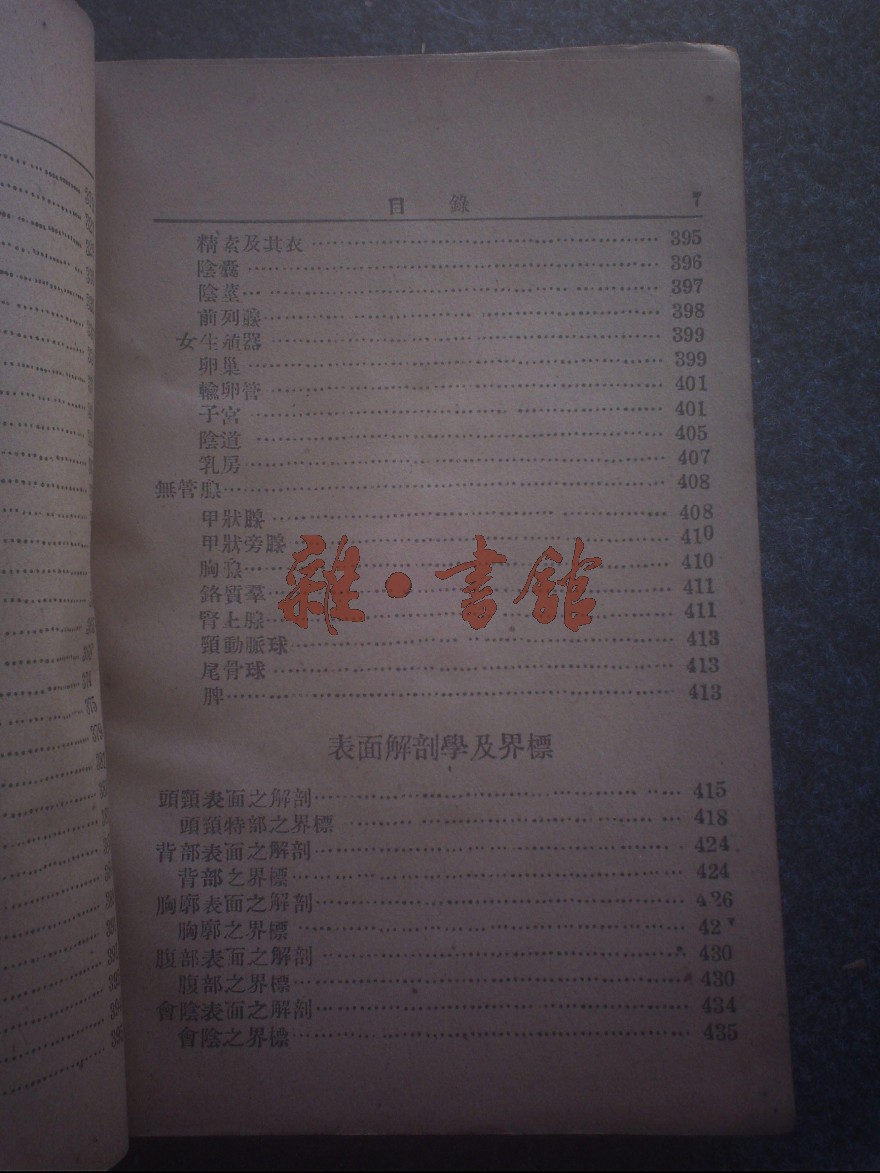 目 錄 7
精索及其衣 395
陰囊 396
陰莖 397
前列腺 398
女生殖器 399
卵巢 399
輸卵管 401
子宮 401
陰道 405
乳房 407
無管腺 408
甲狀腺 408
甲狀旁腺 410
胸腺 410
鉻質羣 411
腎上腺 411
頸動脈球 413
尾骨球 413
脾 413
雜·書館
表面解剖學及界標
頭頸表面之解剖 415
頭頸特部之界標 418
背部表面之解剖 424
背部之界標 424
胸廓表面之解剖 426
胸廓之界標 42
腹部表面之解剖 430
腹部之界標 430
會陰表面之解剖 434
會陰之界標 435